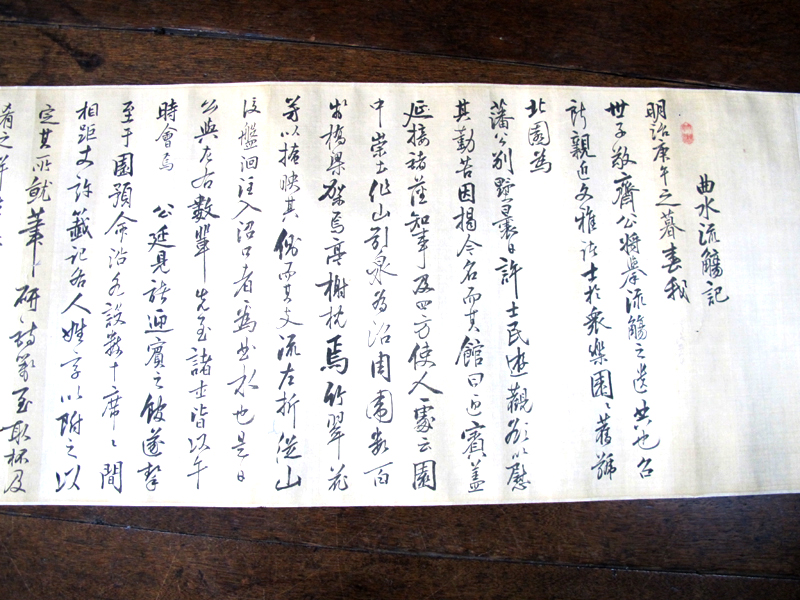 曲水流觴記
明治庚午之暮春我
世子毅齋公將擧流觴之遺典也召
諸親近文雅諸士於衆樂園園舊號
北園為
藩公別野曩日許士民遊觀以慰
其勤苦因揭今名而其館曰迎賓蓋
延接諸藩知事及四方使人處云園
中崇土作山引泉為沼周圍數百
步橋梁架焉亭榭枕焉竹翠花
芳以掩映其份而其支流左折從山
後盤洄注入沼口者為曲水也是日
公與左右數輩先至諸士皆以午
時會焉 公延見諸迎賓之館遂擊
至于園預命沿水設數十席席間
相距丈許籤記各人姓字以附之以
定其所就筆研詩箋至取杯及
肴之